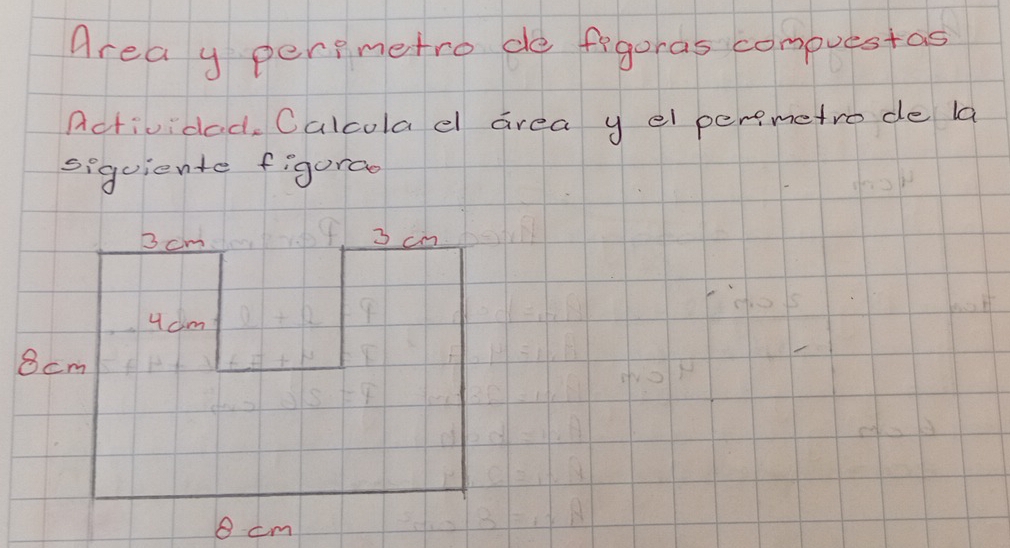 Area y perimetro de figuras compuestas
Actividad. Calcula el área y el perimetro de la
siguiente figura.
3 cm
3 cm
4 cm
8 cm
8 cm